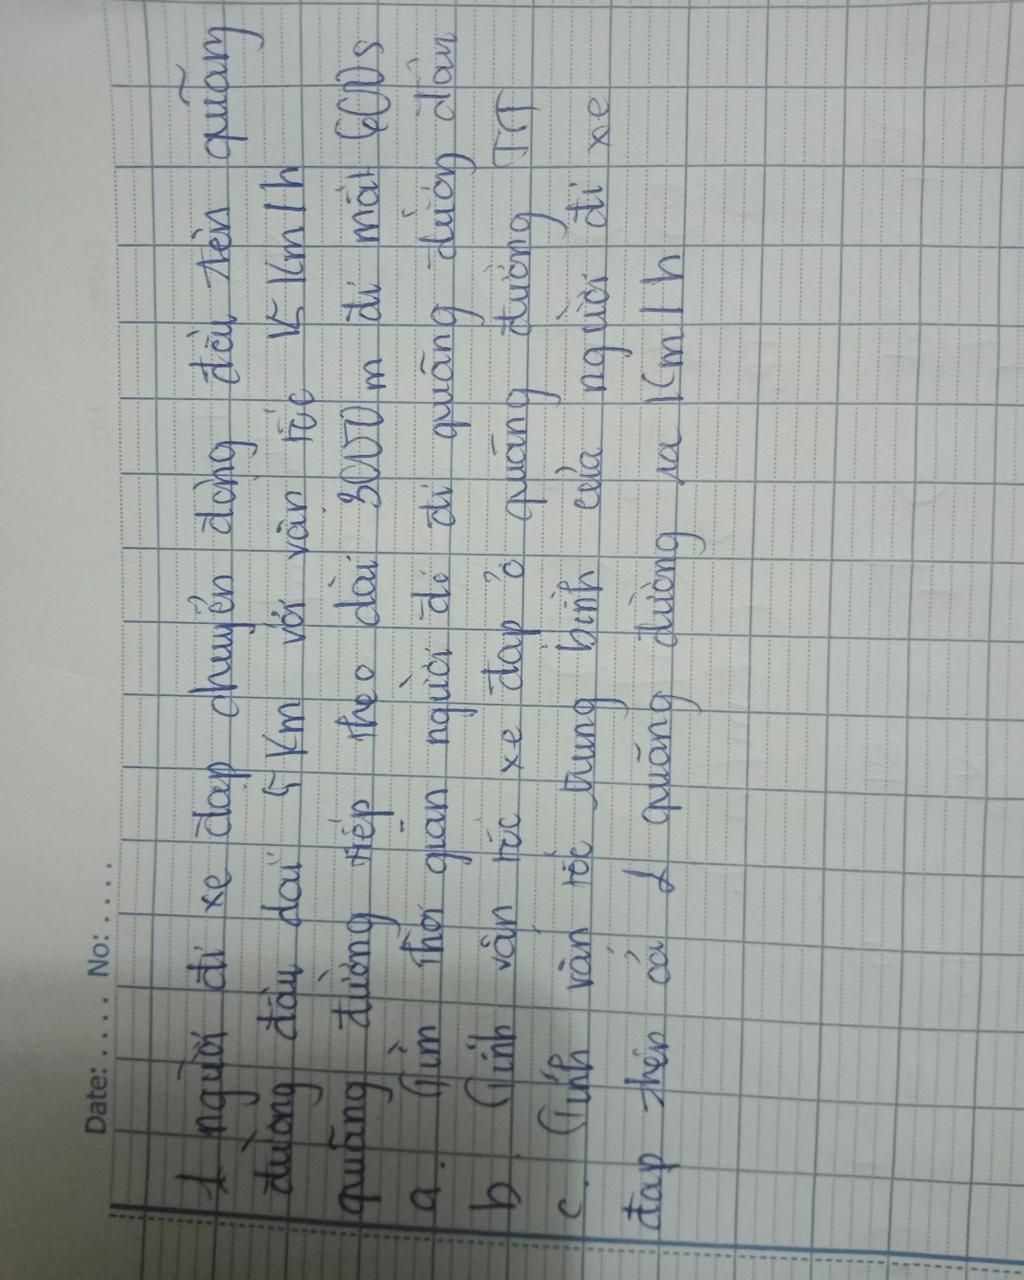 Date: ..... No: .....
1 người đi xe đạp chuyển động đều trên quãng
đường đầu dài 5 Km với vận tốc 15 Km/h
quãng đường tiếp theo dài 3000 m đi mất 600s
a. Tìm thời gian người đó đi quãng đường đầu
b. Tính vận tốc xe đạp ở quãng đường TT
c. Tính vận tốc trung bình của người đi xe
đạp trên cả 2 quãng đường ra Km/h